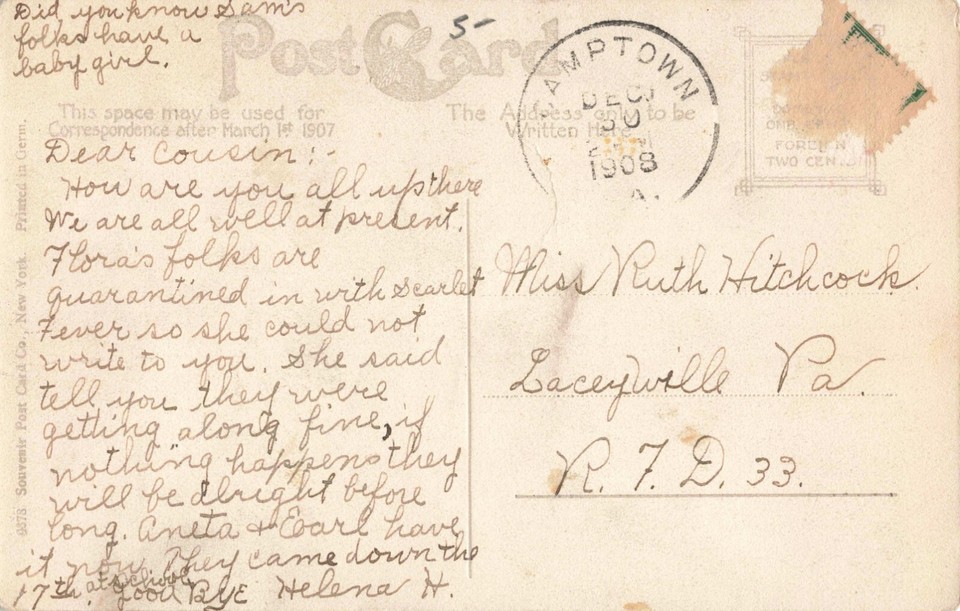 Did you know Sam's
folks have a
baby girl.
5-
Post Card
This space may be used for
Correspondence after March 1st 1907
The Address only to be
Written Here
AMPTOWN
DEC
1908
A.
FOREIGN
TWO CENTS
Dear Cousin:-
How are you all up there
We are all well at present.
Flora's folks are
quarantined in with Scarlet
Fever so she could not
write to you. She said
tell you they were
getting along fine, if
nothing happens they
will be alright before
long. Aneta & Earl have
it now. They came down the
17th. at school Good Bye Helena H.
Miss Ruth Hitchcock.
Laceyville Pa.
R. F. D. 33.
Souvenir Post Card Co., New York. Printed in Germ.